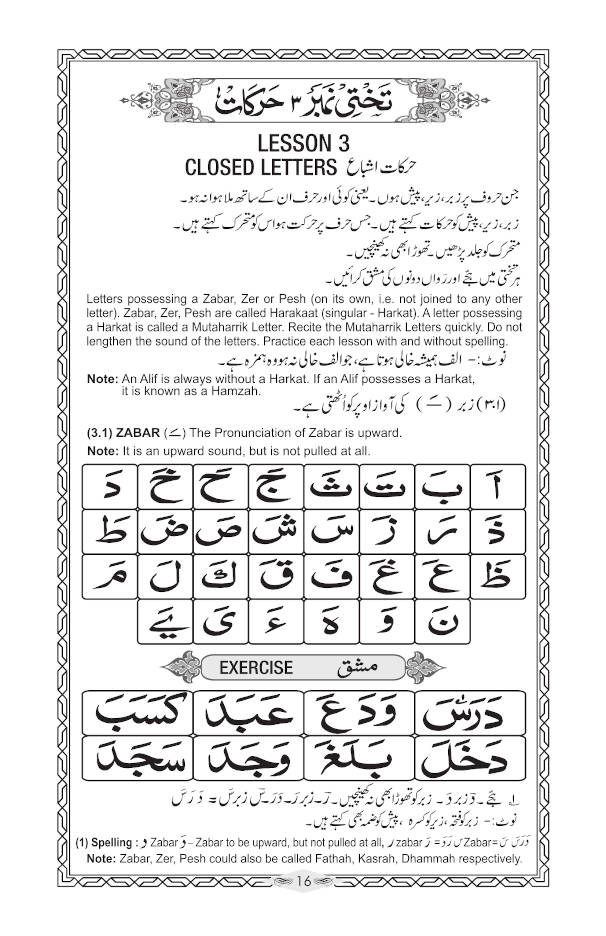 تختی نمبر ۳ حرکات
LESSON 3
CLOSED LETTERS حرکات اشباع
جن حروف پر زبر، زیر، پیش ہوں۔ یعنی کوئی اور حرف ان کے ساتھ ملا ہوا نہ ہو۔
زبر، زیر، پیش کو حرکات کہتے ہیں۔ جس حرف پر حرکت ہو اس کو متحرک کہتے ہیں۔
متحرک کو جلد پڑھیں۔ تھوڑا بھی نہ کھینچیں۔
ہر تختی میں ہجّے اور رواں دونوں کی مشق کرائیں۔
Letters possessing a Zabar, Zer or Pesh (on its own, i.e. not joined to any other
letter). Zabar, Zer, Pesh are called Harakaat (singular - Harkat). A letter possessing
a Harkat is called a Mutaharrik Letter. Recite the Mutaharrik Letters quickly. Do not
lengthen the sound of the letters. Practice each lesson with and without spelling.
نوٹ:- الف ہمیشہ خالی ہوتا ہے، جو الف خالی نہ ہو وہ ہمزہ ہے۔
Note: An Alif is always without a Harkat. If an Alif possesses a Harkat,
it is known as a Hamzah.
(۳.۱) زبر (ـَ) کی آواز اوپر کو اُٹھتی ہے۔
(3.1) ZABAR (ـَ) The Pronunciation of Zabar is upward.
Note: It is an upward sound, but is not pulled at all.
اَ بَ تَ ثَ جَ حَ خَ دَ
ذَ رَ زَ سَ شَ صَ ضَ طَ
ظَ عَ غَ فَ قَ كَ لَ مَ
نَ وَ هَ ءَ یَ یَے
EXERCISE مشق
دَرَسَ وَدَعَ عَبَدَ كَسَبَ
دَخَلَ بَلَغَ وَجَدَ سَجَدَ
ہجّے۔ دَ زبر دَ۔ زبر کو تھوڑا بھی نہ کھینچیں۔ رَ۔ زبر رَ۔ دَرَ۔ سَ زبر سَ = دَرَسَ
نوٹ:- زبر کو فتحہ، زیر کو کسرہ، پیش کو ضمہ بھی کہتے ہیں۔
(1) Spelling : و Zabar وَ – Zabar to be upward, but not pulled at all, ر zabar رَ = دَرَ س Zabar= سَ دَرَسَ
Note: Zabar, Zer, Pesh could also be called Fathah, Kasrah, Dhammah respectively.
16